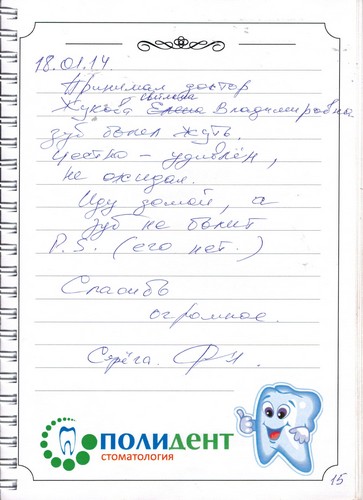 18.01.14.
Принимал доктор
Светлана
Жукова Елена Владимировна
зуб болел жуть.
Честно – удивлён,
не ожидал.
Иду домой, а
зуб не болит
P.S. (его нет.)
Спасибо
огромное.
Серёга.
ПОЛИДЕНТ
СТОМАТОЛОГИЯ
15